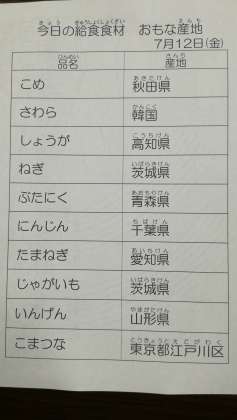 今日の給食食材　おもな産地
7月12日(金)
品名　産地
こめ　秋田県
さわら　韓国
しょうが　高知県
ねぎ　茨城県
ぶたにく　青森県
にんじん　千葉県
たまねぎ　愛知県
じゃがいも　茨城県
いんげん　山形県
こまつな　東京都江戸川区